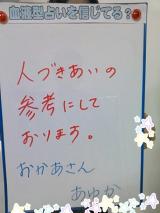 血液型占いを信じてる?
人づきあいの
参考にして
おります。
おかあさん
あゆか